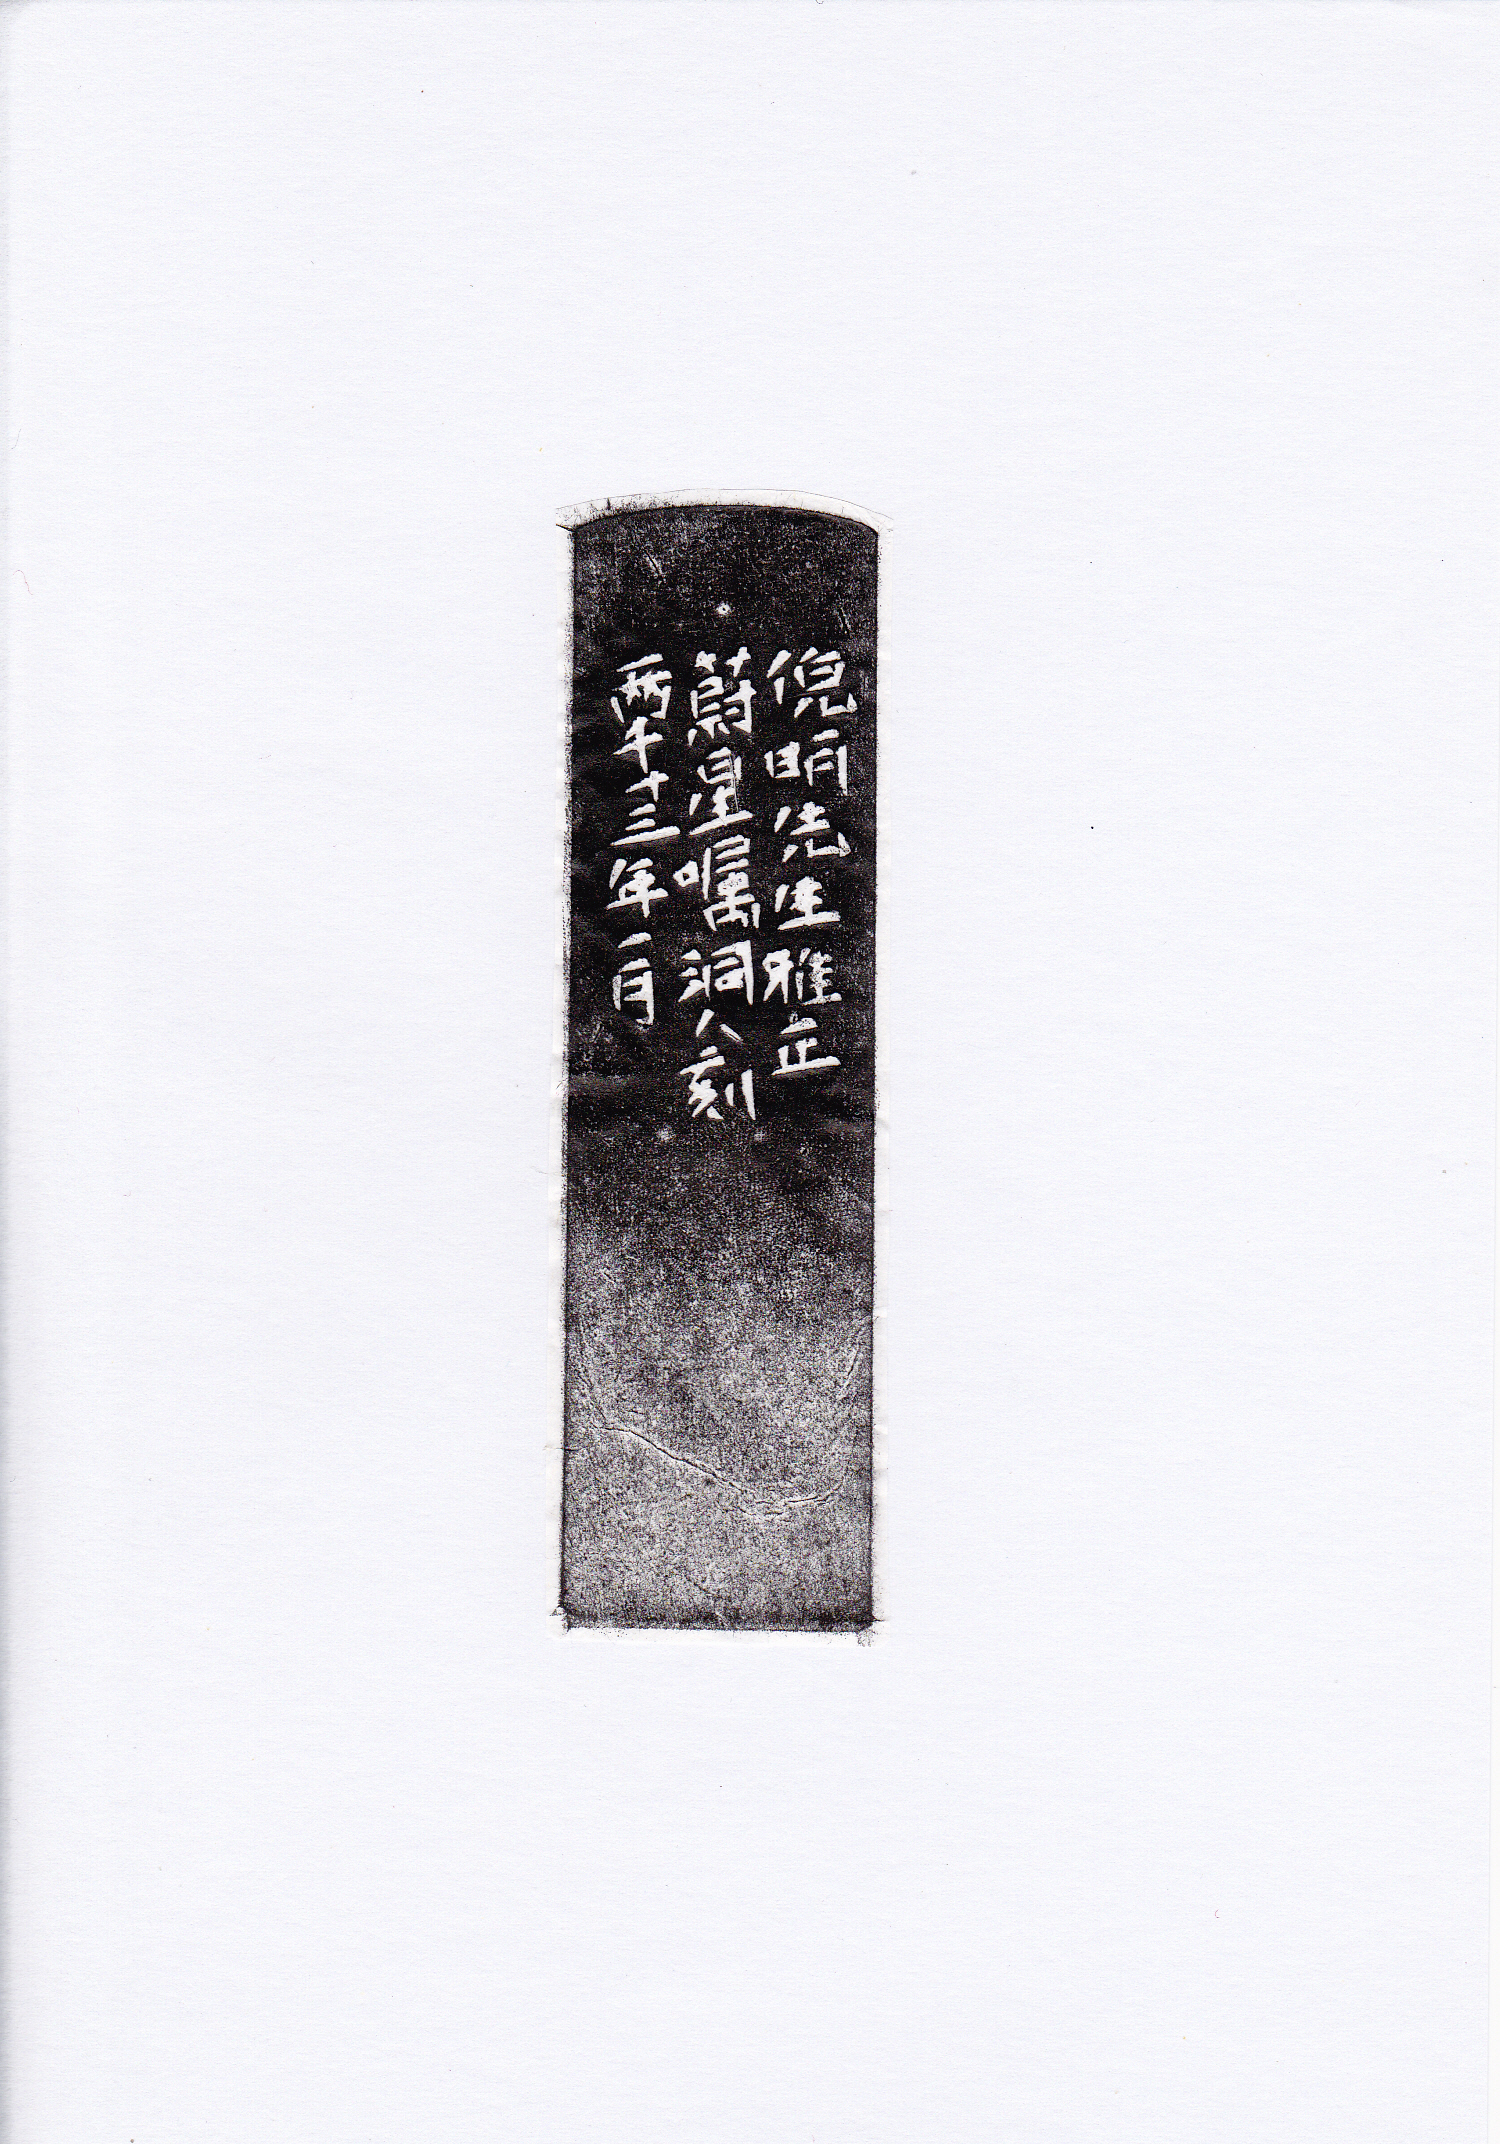 倪明先生雅正
蔚星嘱洞人刻
两千十三年一月